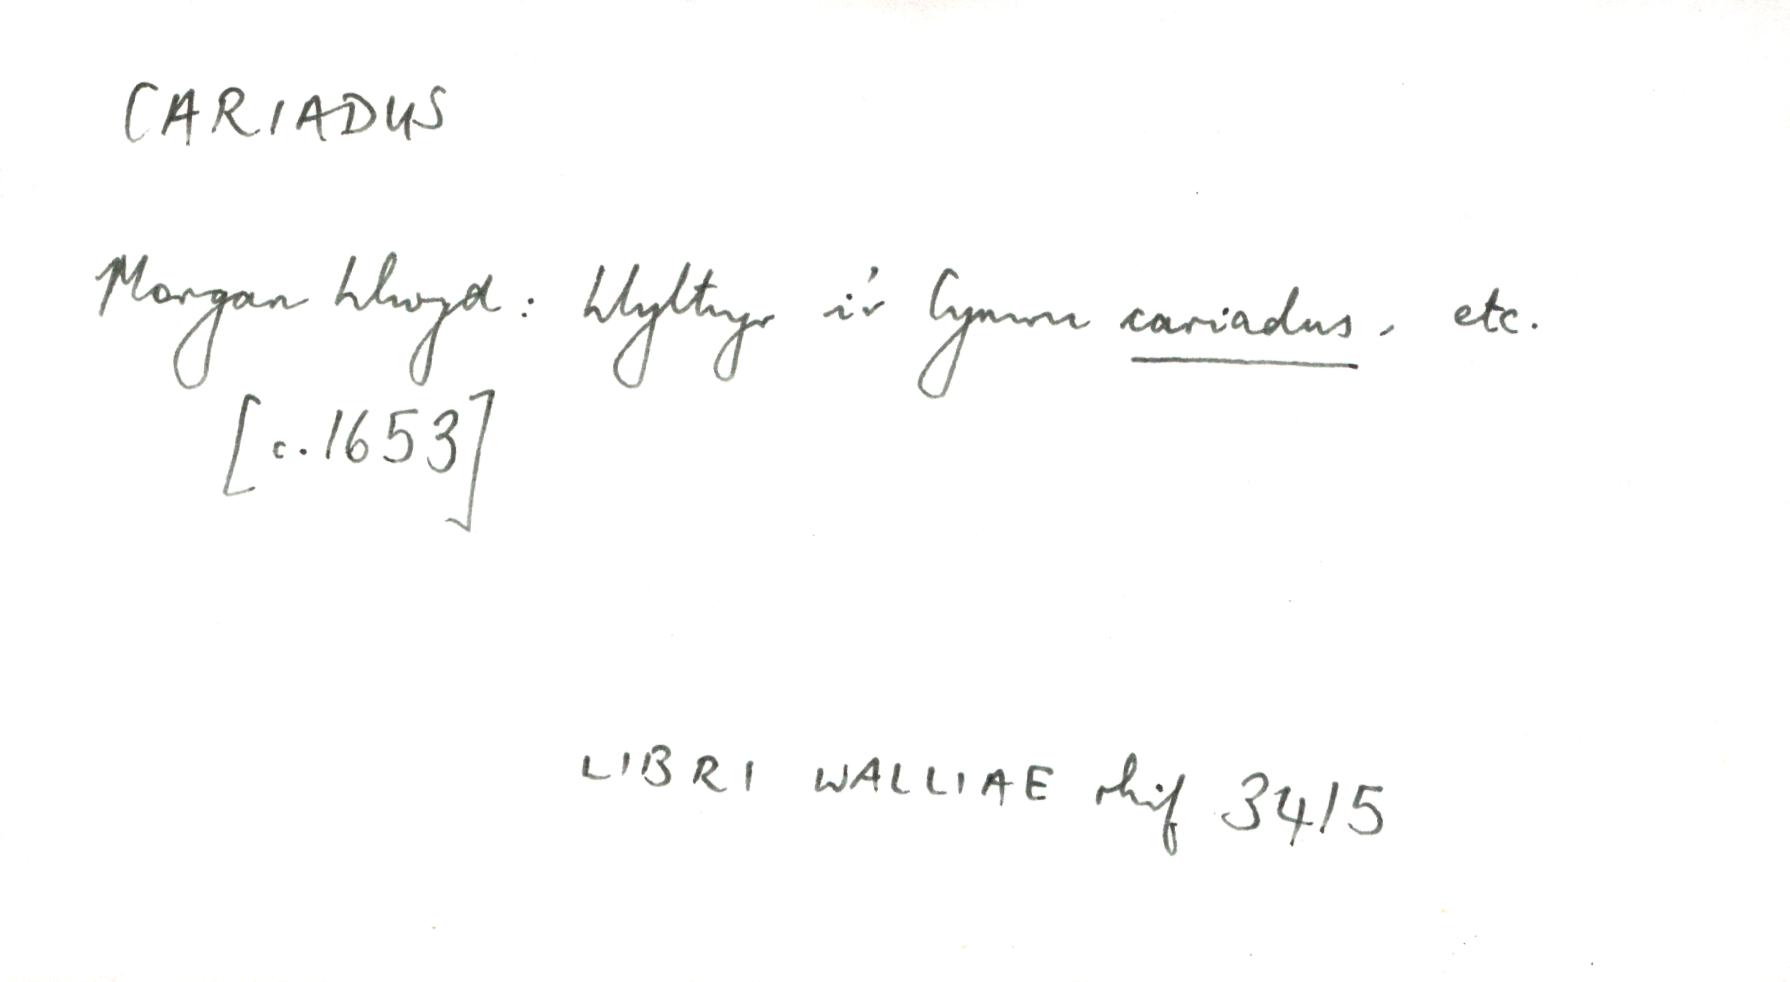 CARIADUS
Morgan Llwyd: Llythyr i'r Cymru cariadus, etc.
[c. 1653]
LIBRI WALLIAE rhif 3415